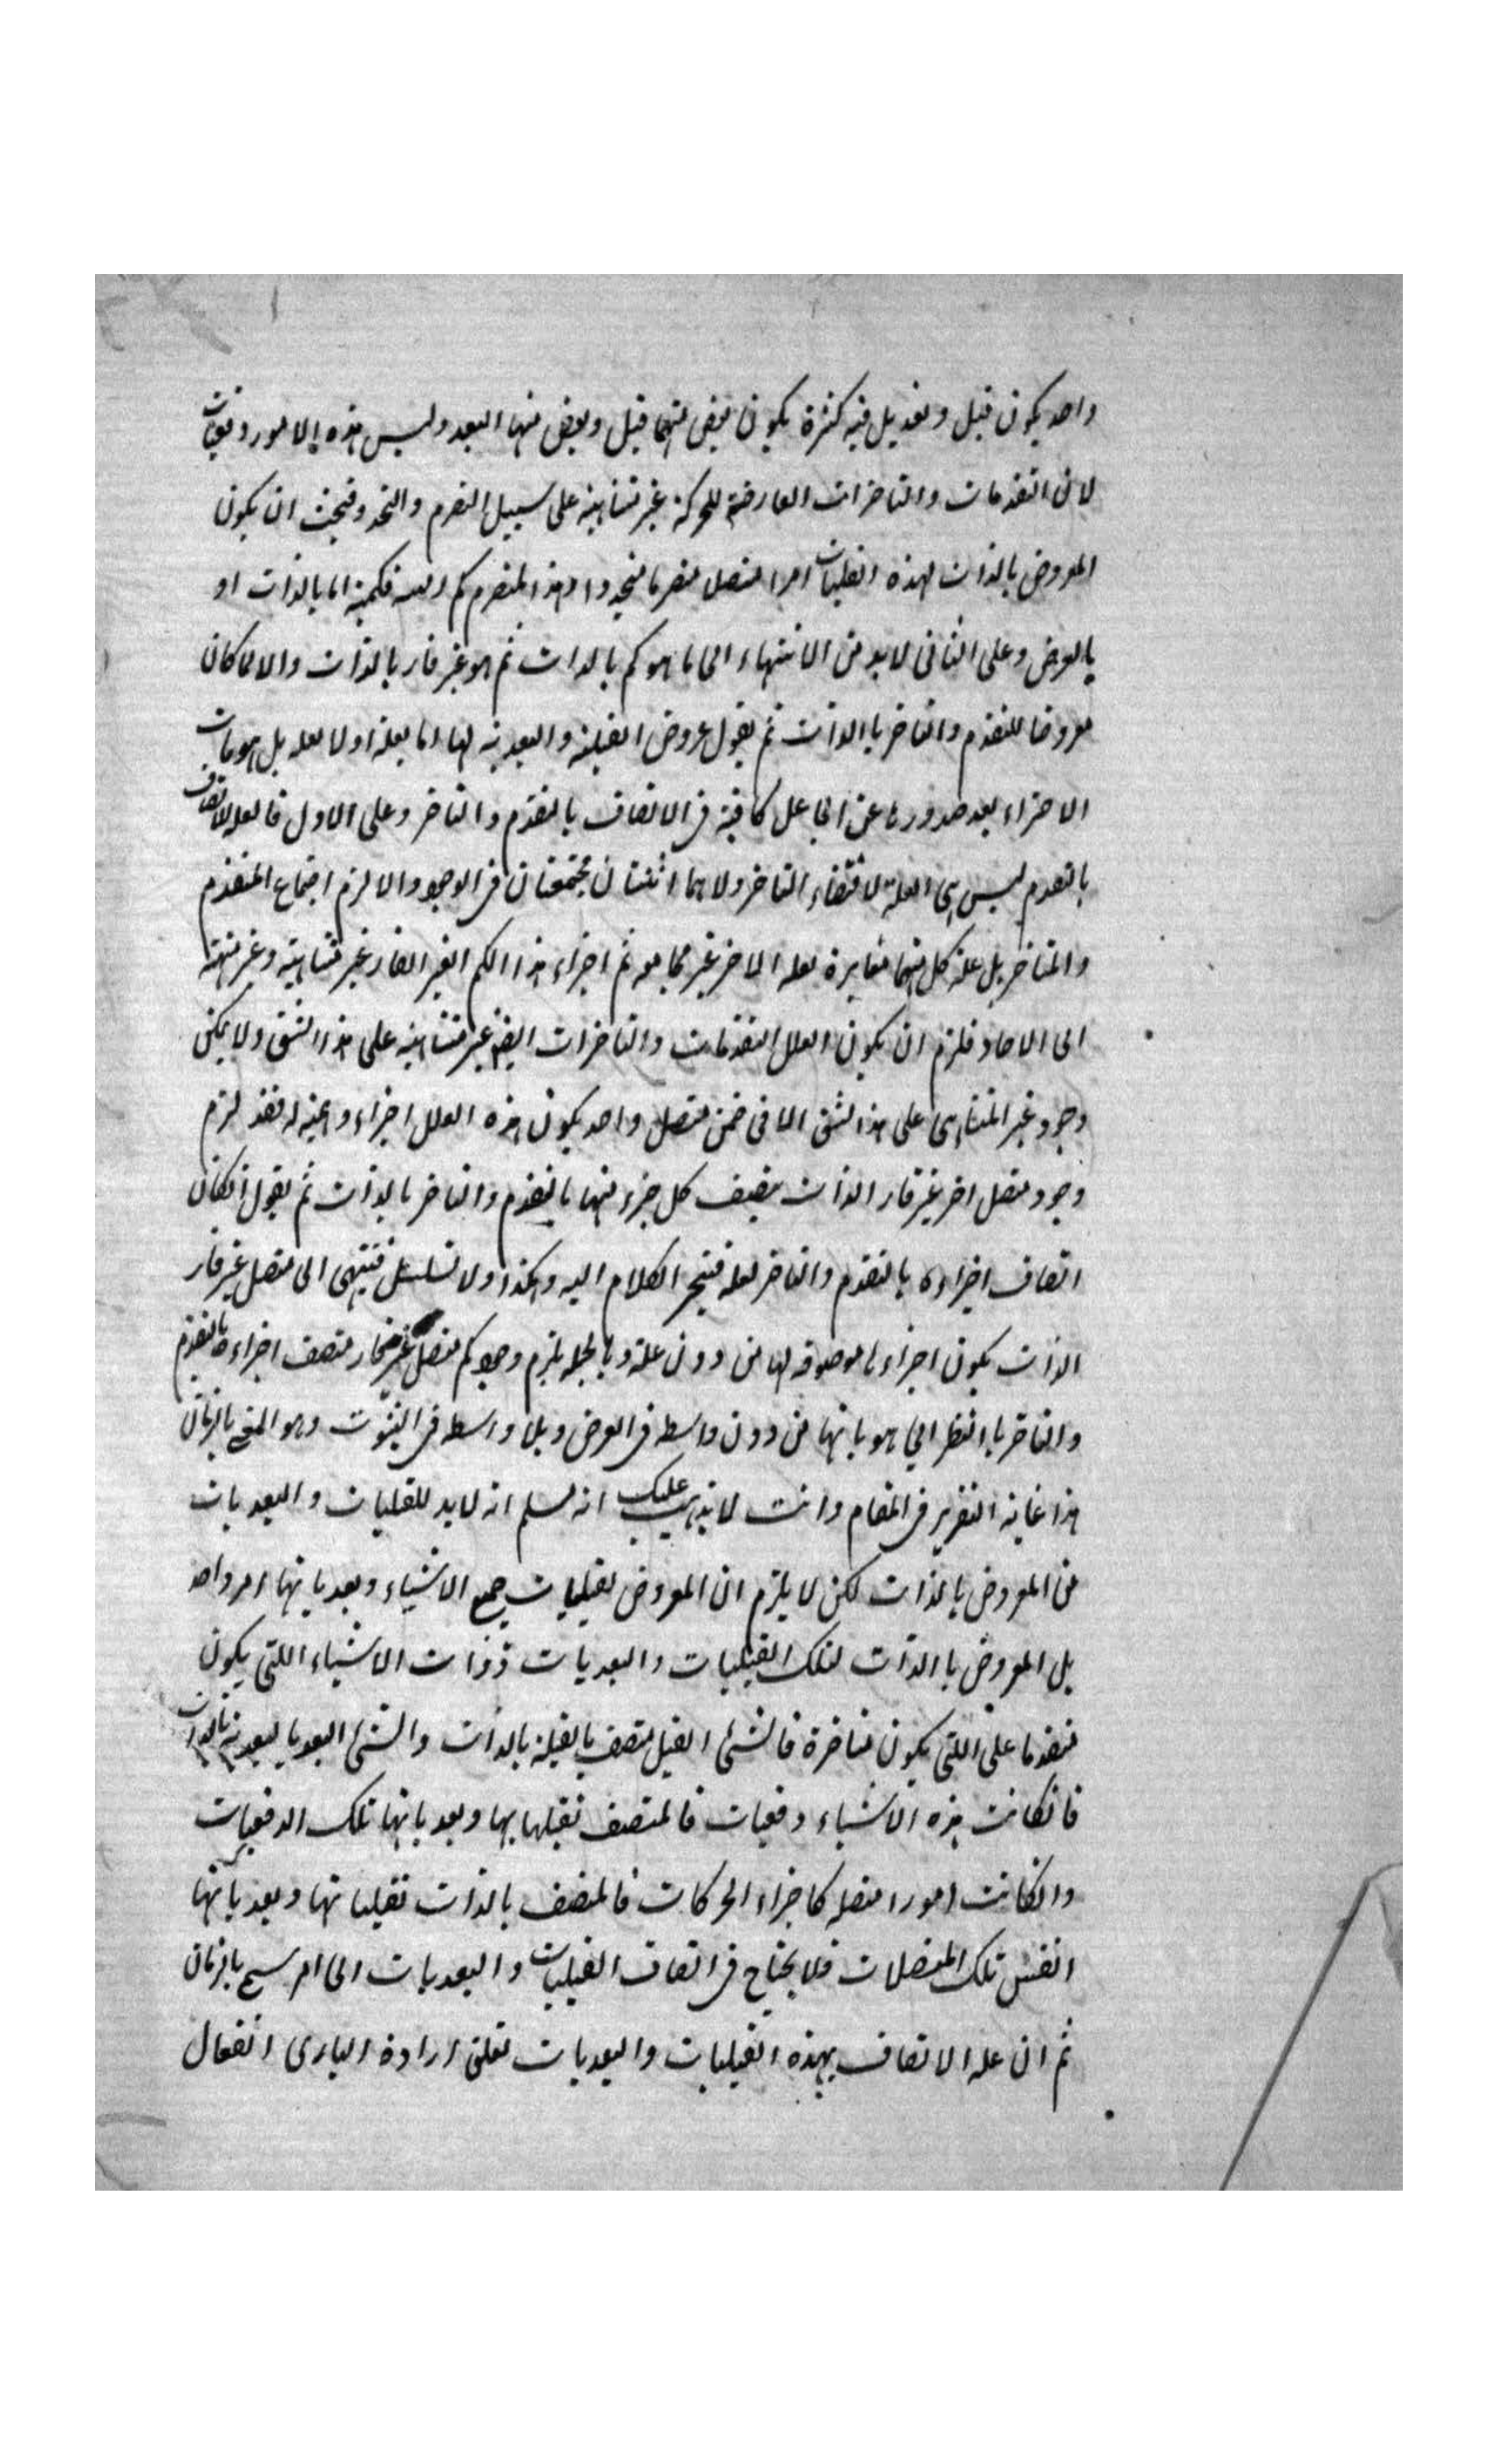 واحد يكون قبل وبعد بل فيه كثرة يكون بعض منهما قبل وبعض منها البعد وليس هذه الامور دفعيات
لان التقدمات والتاخرات العارضة للحركة غير متناهية على سبيل التصرم والتجدد فيجب ان يكون
المعروض بالذات لهذه القبليات امرا متصلا متصرما متجددا وهذا المتصرم كم فكمية اما بالذات او
بالعرض وعلى الثانى لابد من الانتهاء الى ما هو كم بالذات ثم هو غير قار بالذات والا لما كان
معروضا للتقدم والتاخر باالذات ثم يقول عروض القبلية والبعدية لها اما بعلة اولا بعلة بل هويات
الاجزاء بعد صدورها عن الجاعل كافية فى الاتصاف بالتقدم والتاخر وعلى الاول فالعلة لاتصاف
بالتقدم ليس هى العلة لاقتضاء التاخر ولا هما اثنتان مجتمعتان فى الوجود والا لزم اجتماع المتقدم
والمتاخر بل علة كل منهما مغايرة لعلة الاخر غير مجامعة ثم اجزاء هذا الكم الغير القار غير متناهية وغير منتهية
الى الاحاد فلزم ان يكون العلل التقدمات والتاخرات ايضا غير متناهية على هذا الشق ولا يمكن
وجود غير المتناهى على هذا الشق الا فى ضمن متصل واحد يكون هذه العلل اجزاء وهمية له فقد لزم
وجود متصل اخر غير قار الذات يتصف كل جزء منها بالتقدم والتاخر بالذات ثم يقول انكان
اتصاف اجزاءه بالتقدم والتاخر لعلة فينجر الكلام اليه وهكذا ولا تسلسل فينتهى الى متصل غير قار
الذات يكون اجزاءها موصوفة لها من دون علة وبالجملة يلزم وجود كم متصل غير قار متصف اجزاءه بالتقدم
والتاخر باالنظر الى هوياتها من دون واسطه فى العروض وبلا واسطه فى الثبوت وهو المسمى بالزمان
هذا غاية التقرير فى المقام وانت لا يذهب عليك انه مسلم انه لابد للقبليات والبعديات
من المعروض بالذات لكن لا يلزم ان المعروض لقبليات جميع الاشياء وبعدياتها امر واحد
بل المعروض باالذات لتلك القبليات والبعديات ذوات الاشياء اللتى يكون
متقدما على اللتى يكون متاخرة فالشئ القبل متصف بالقبلية بالذات والشئ البعد بالبعدية بالذات
فانكانت هذه الاشياء دفعيات فالمتصف بقبلياتها وبعدياتها تلك الدفعيات
وانكانت امورا متصلة كاجزاء الحركات فالمتصف بالذات بقبلياتها وبعدياتها
انفس تلك المتصلات فلا يحتاج فى اتصاف القبليات والبعديات الى امر يسمى بالزمان
ثم ان علة الاتصاف بهذه القبليات والبعديات تعلق ارادة البارى الفعال